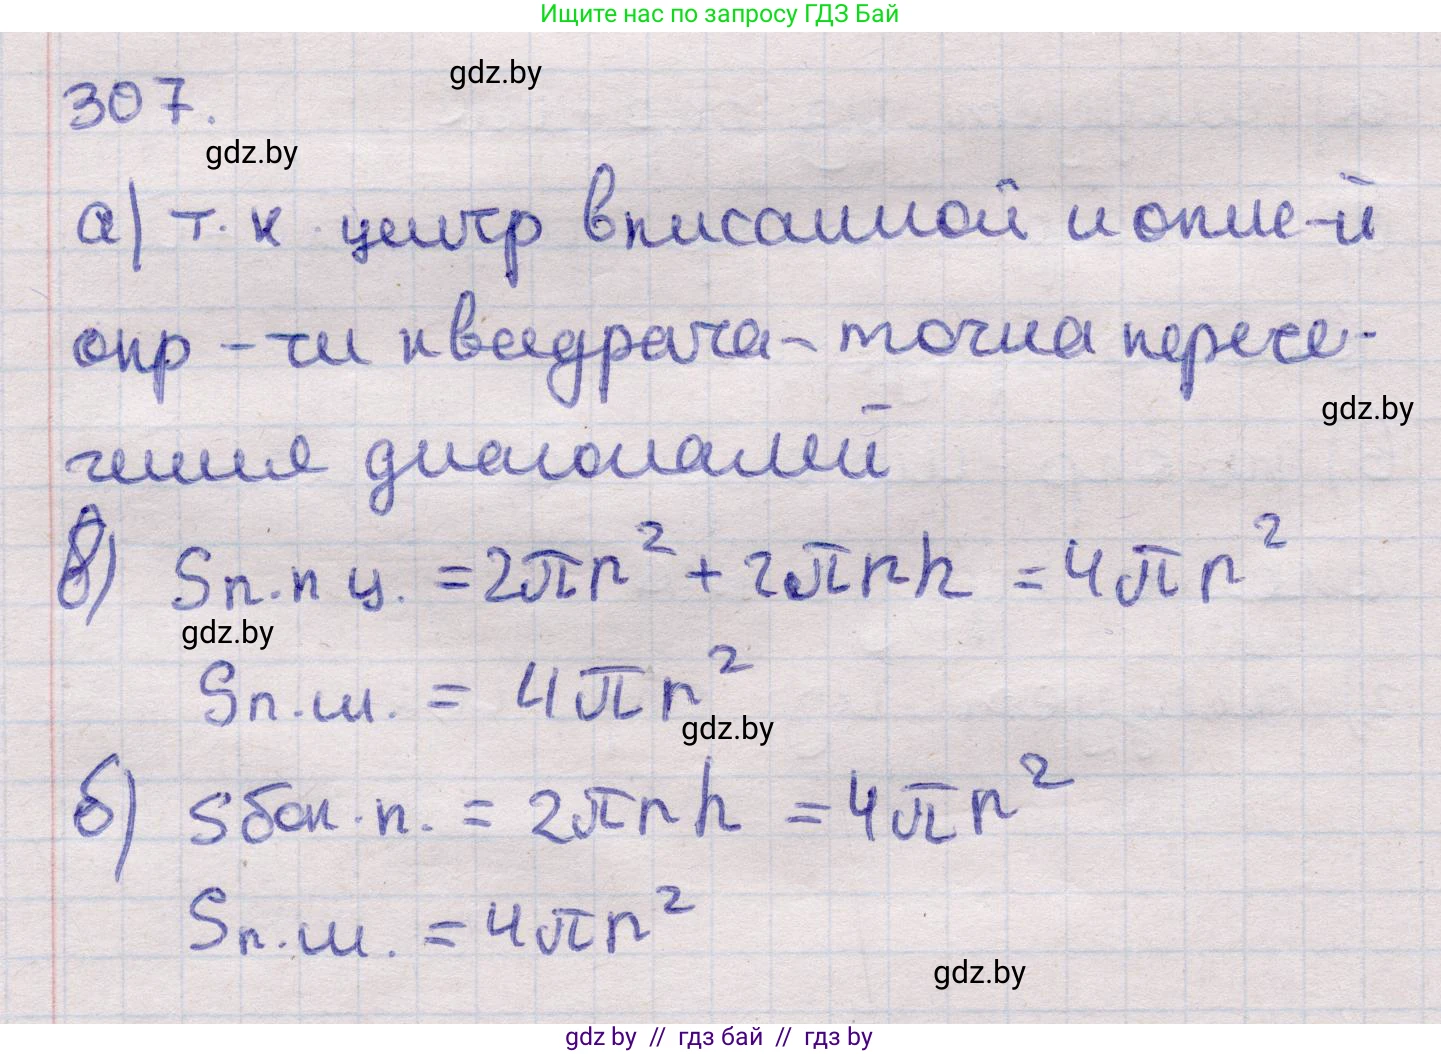 Ищите нас по запросу ГДЗ Бай
gdz.by
307.
gdz.by
а) т.к. центр вписанной и опис-й
окр-ти квадрата - точка пересе-
gdz.by
чения диагоналей
в) Sп.п ц. = 2πr² + 2πrh = 4πr²
gdz.by
Sп.ш. = 4πr²
gdz.by
б) Sбок.п. = 2πrh = 4πr²
Sп.ш. = 4πr²
gdz.by
gdz by // гдз бай // гдз by